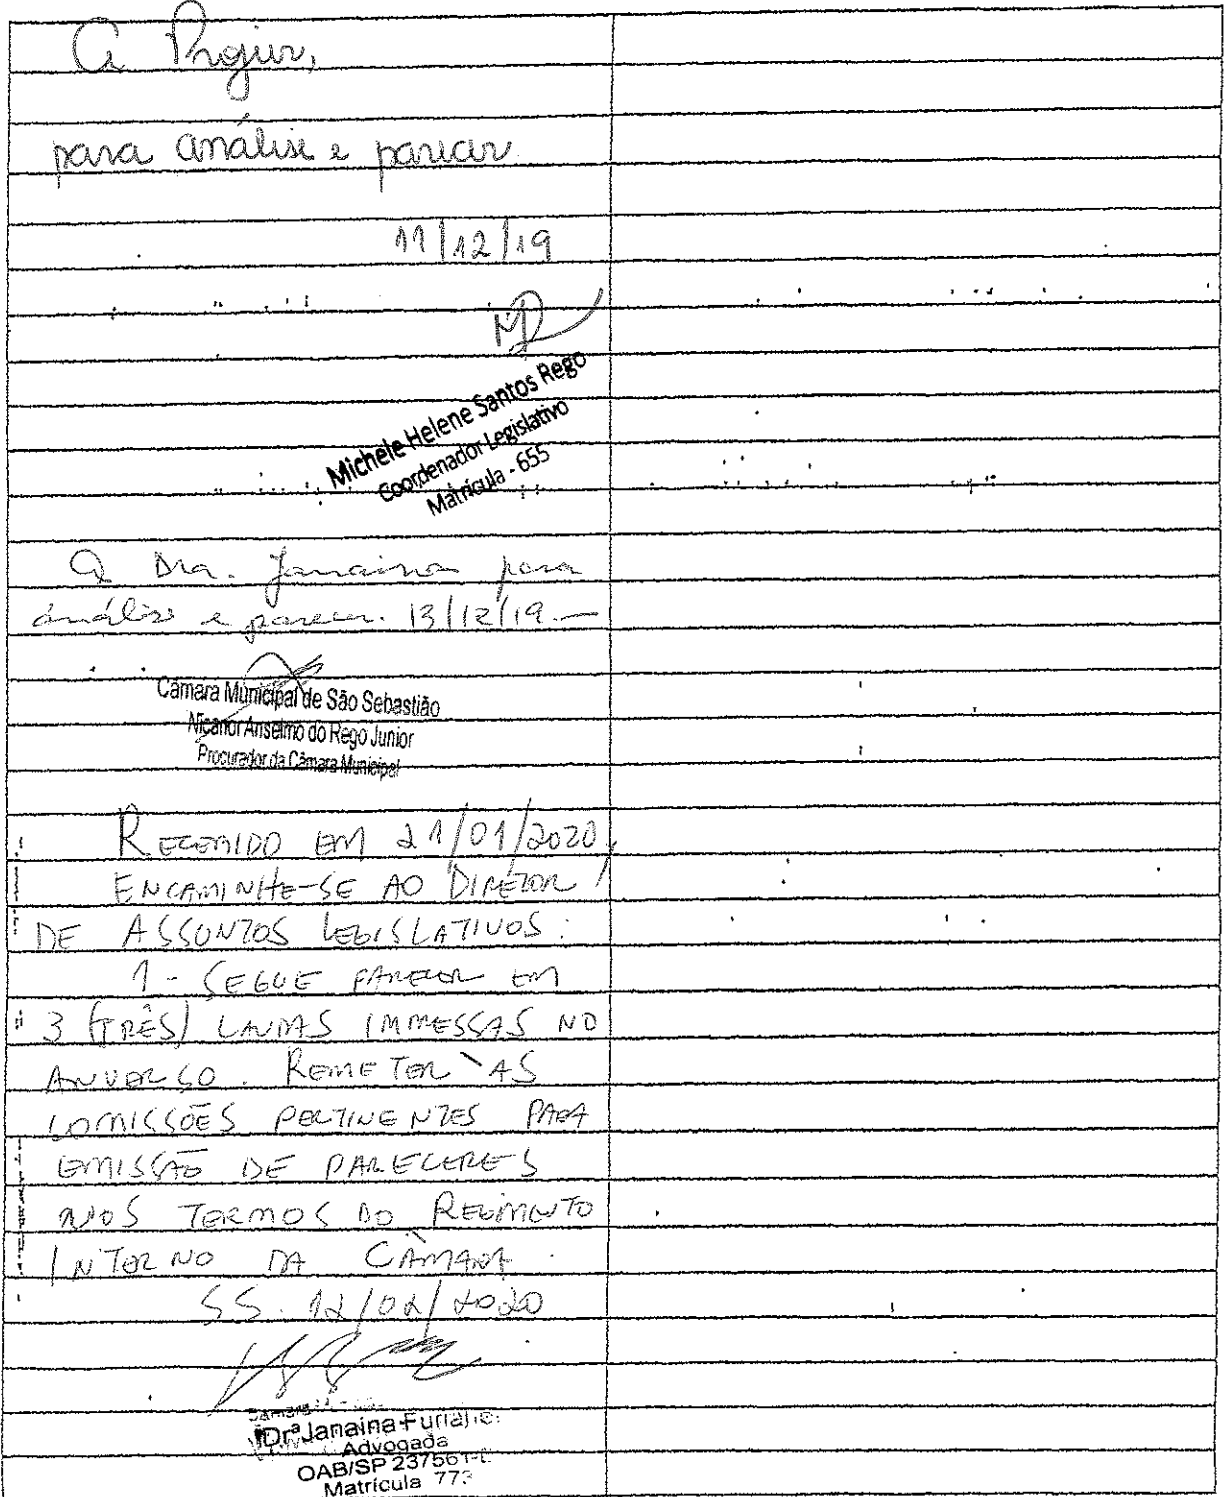 A Projur,
para análise e parecer
11/12/19
Michele Helene Santos Rego
Coordenador Legislativo
Matrícula - 655
A Dra. Janaina para
análise e parecer. 13/12/19.—
Câmara Municipal de São Sebastião
Nicanor Anselmo do Rego Junior
Procurador da Câmara Municipal
RECEBIDO EM 21/01/2020,
ENCAMINHE-SE AO DIRETOR
DE ASSUNTOS LEGISLATIVOS:
1 - SEGUE PARECER EM
3 (TRÊS) LAUDAS IMPRESSAS NO
ANVERSO. REMETER ÀS
COMISSÕES PERTINENTES PARA
EMISSÃO DE PARECERES
NOS TERMOS DO REGIMENTO
INTERNO DA CÂMARA.
SS. 12/02/2020
Drª Janaina
Advogada
OAB/SP 237561
Matrícula 773